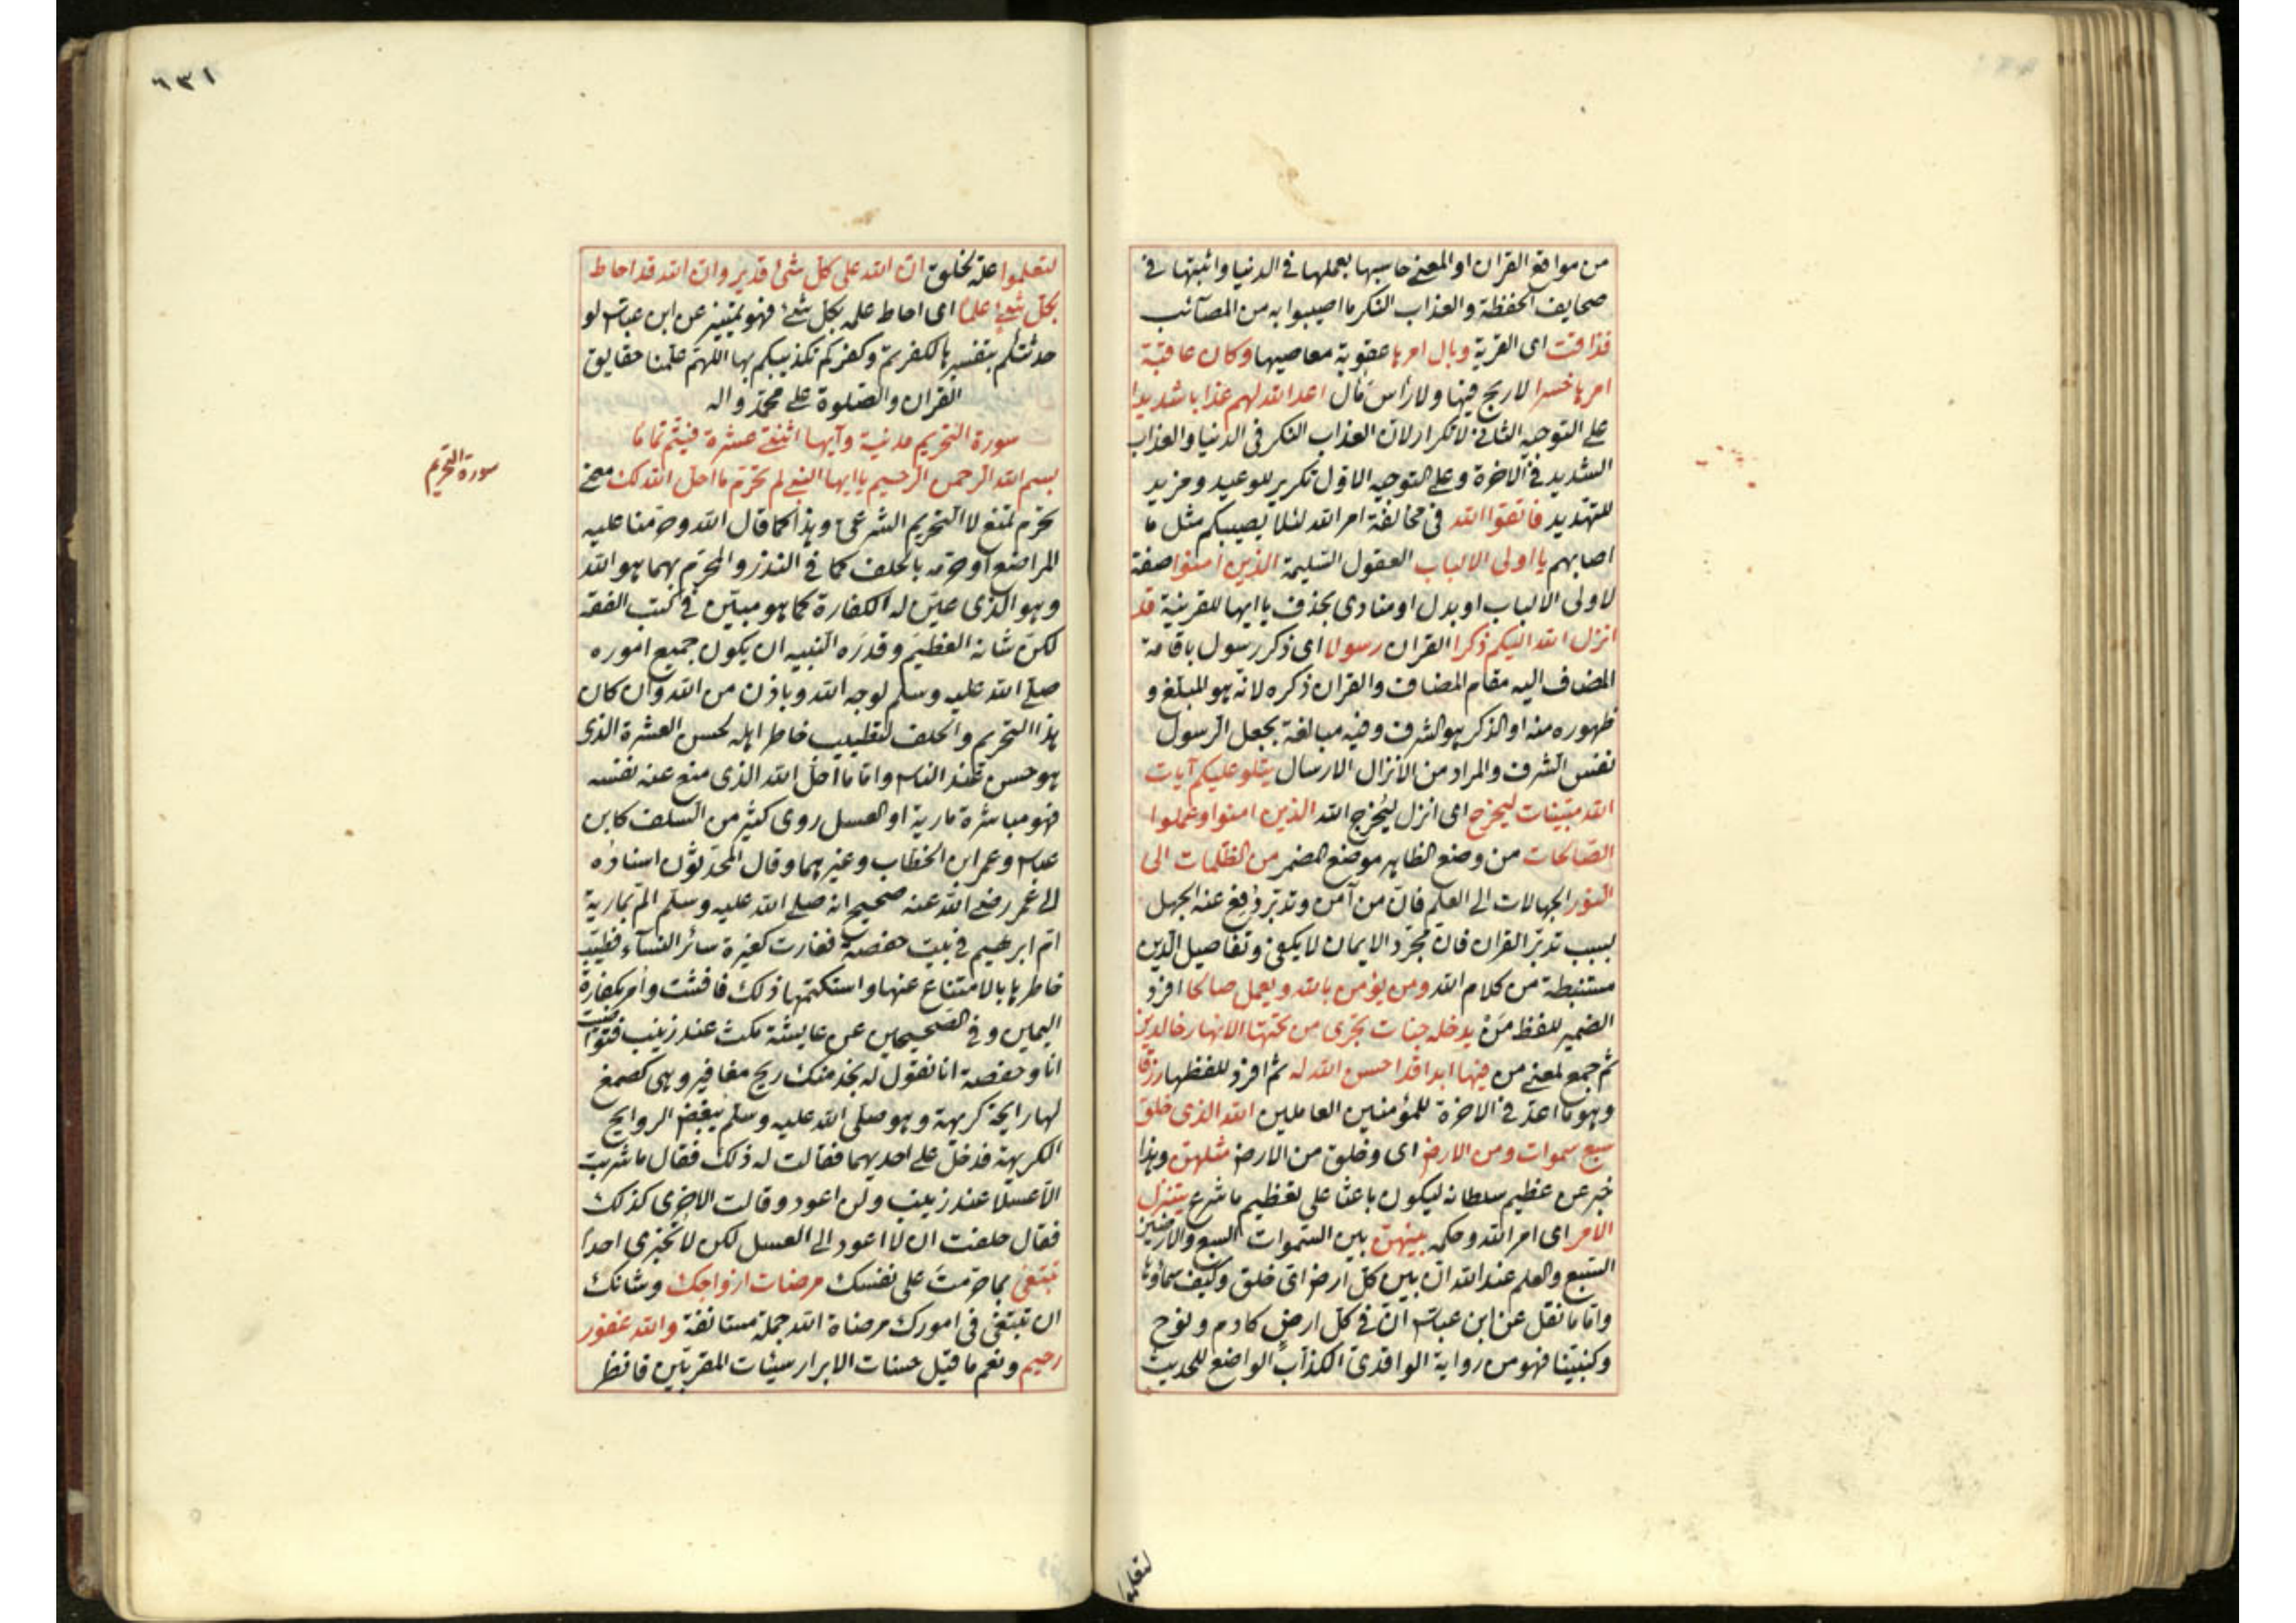 من مواقع القران او المعنى حاسبها بعملها فى الدنيا واثبتها فى
صحايف الحفظة والعذاب النكر ما اصيبوا به من المصآئب
فذاقت اى القرية وبال امرها عقوبة معاصيها وكان عاقبة
امرها خسرا لا ربح فيها ولا رأس مال اعد الله لهم عذابا شديدا
على التوجيه الثانى لا تكرار لان العذاب النكر فى الدنيا والعذاب
الشديد فى الاخرة وعلى التوجيه الاول تكرير للوعيد ومزيد
للتهديد فاتقوا الله فى مخالفة امر الله لئلا يصيبكم مثل ما
اصابهم يا اولى الالباب العقول السليمة الذين امنوا صفة
لاولى الالباب او بدل او منادى بحذف يا ايها للقرينة قد
انزل الله اليكم ذكرا القران رسولا اى ذكر رسول باقامة
المضاف اليه مقام المضاف والقران ذكره لانه هو المبلغ و
ظهوره منه او الذكر هو الشرف وفيه مبالغة بجعل الرسول
نفس الشرف والمراد من الانزال الارسال يتلو عليكم آيات
الله مبينات ليخرج اى انزل ليُخرج الله الذين امنوا وعملوا
الصالحات من وضع الظاهر موضع المضمر من الظلمات الى
النور الجهالات الى العلم فان من آمن وتدبر رُفع عنه الجهل
بسبب تدبر القران فان مجرد الايمان لا يكفى وتفاصيل الدين
مستنبطة من كلام الله ومن يؤمن بالله ويعمل صالحا افرد
الضمير للفظ مَنْ يدخله جنات تجرى من تحتها الانهار خالدين
ثم جمع لمعنى من فيها ابدا قد احسن الله له ثم افرد للفظها رزقا
وهو ما اعد فى الاخرة للمؤمنين العاملين الله الذى خلق
سبع سموات ومن الارض اى وخلق من الارض مثلهن وهذا
خبر عن عظيم سلطانه ليكون باعثا على تعظيم ما شرع يتنزل
الامر اى امر الله وحكمه بينهن بين السموات السبع والارضين
السبع والعلم عند الله ان بين كل ارض اى خلق وكيف سماؤها
واما ما نقل عن ابن عباس ان فى كل ارضٍ كادم ونوح
وكنبينا فهو من رواية الواقدى الكذاب الواضع للحديث
لتعلموا
٦٣١
لتعلموا علة لخلق ان الله على كل شئ قدير وان الله قد احاط
بكل شئ علما اى احاط علمه بكل شئ فهو تمييز عن ابن عباس لو
حدثتكم بتفسيرها لكفرتم وكفركم تكذيبكم بها اللهم علمنا حقايق
القران والصلوة على محمد واله
سورة التحريم مدنية وآيها اثنتى عشرة
سورة التحريم
بسم الله الرحمن الرحيم يا ايها النبى لم تحرّم ما احل الله لك معنى
تحرّم تمنع لا التحريم الشرعى وهذا كما قال الله وحرمنا عليه
المراضع او حرمه بالحلف كما فى النذر والمحرم بهما هو الله
وهو الذى عين له الكفارة كما هو مبين فى كتب الفقه
لكن شانه العظيم وقدره النبيه ان يكون جميع اموره
صلى الله عليه وسلم لوجه الله وباذن من الله وان كان
هذا التحريم والحلف لتطييب خاطر اهله لحسن العشرة الذى
هو حسن عند الناس واما ما احل الله الذى منع عنه نفسه
فهو مباشرة مارية او العسل روى كثير من السلف كابن
عباس وعمر ابن الخطاب وغيرهما وقال المحدثون اسناده
الى عمر رضى الله عنه صحيح انه صلى الله عليه وسلم الم بمارية
ام ابرهيم فى بيت حفصة فغارت كغيرة سائر النسآء فطيب
خاطرها بالامتناع عنها واستكتمها ذلك فافشت وأمر بكفارة
اليمين وفى الصحيحين عن عايشة مكث عند زينب فتواصيت
انا وحفصة انا نقول له نجد منك ريح مغافير وهى كصمغ
لها رايحة كريهة وهو صلى الله عليه وسلم يبغض الروايح
الكريهة فدخل على احديهما فقالت له ذلك فقال ما شربت
الا عسلا عند زينب ولن اعود وقالت الاخرى كذلك
فقال حلفت ان لا اعود الى العسل لكن لا تخبرى احدا
تبتغى بما حرمتَ على نفسك مرضات ازواجك وشانك
ان تبتغى فى امورك مرضاة الله جملة مستانفة والله غفور
رحيم ونعم ما قيل حسنات الابرار سيئات المقربين فانظر